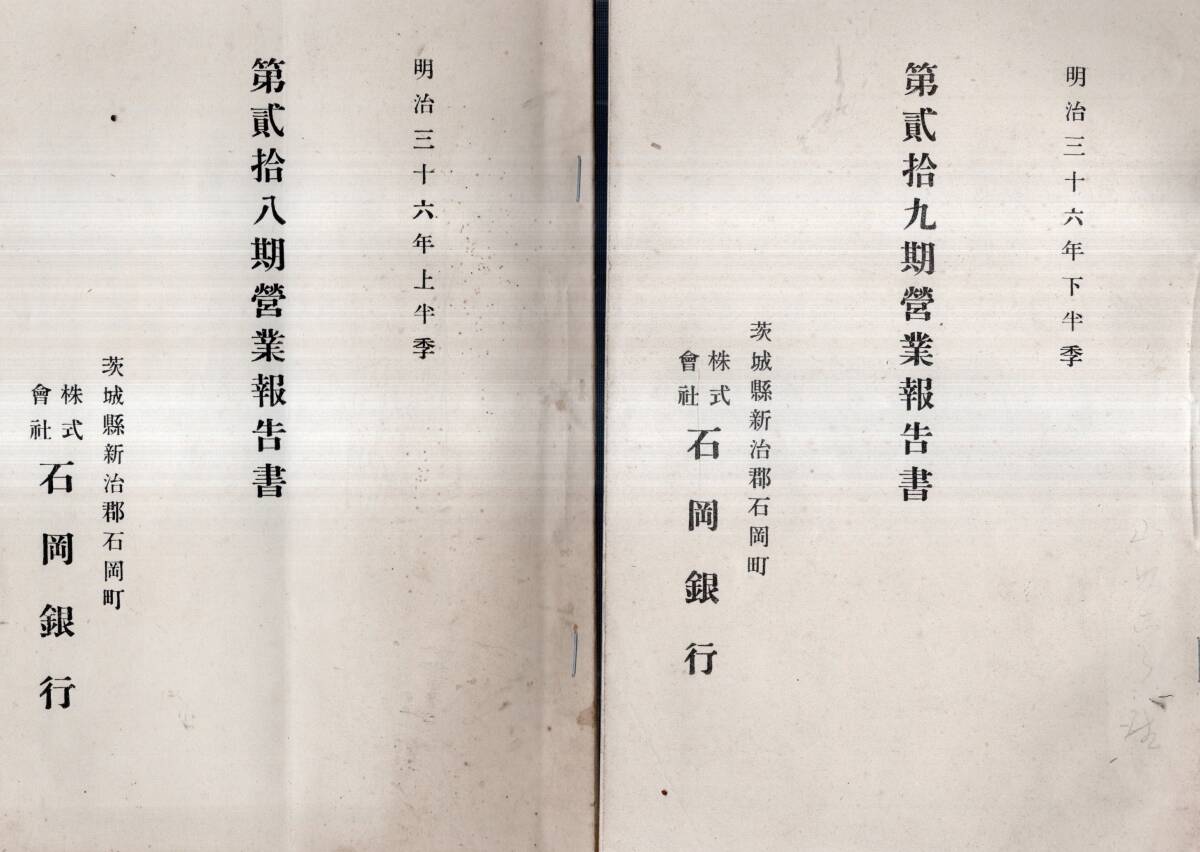 明治三十六年下半季
第貳拾九期營業報告書
茨城縣新治郡石岡町
株式會社石岡銀行
明治三十六年上半季
第貳拾八期營業報告書
茨城縣新治郡石岡町
株式會社石岡銀行